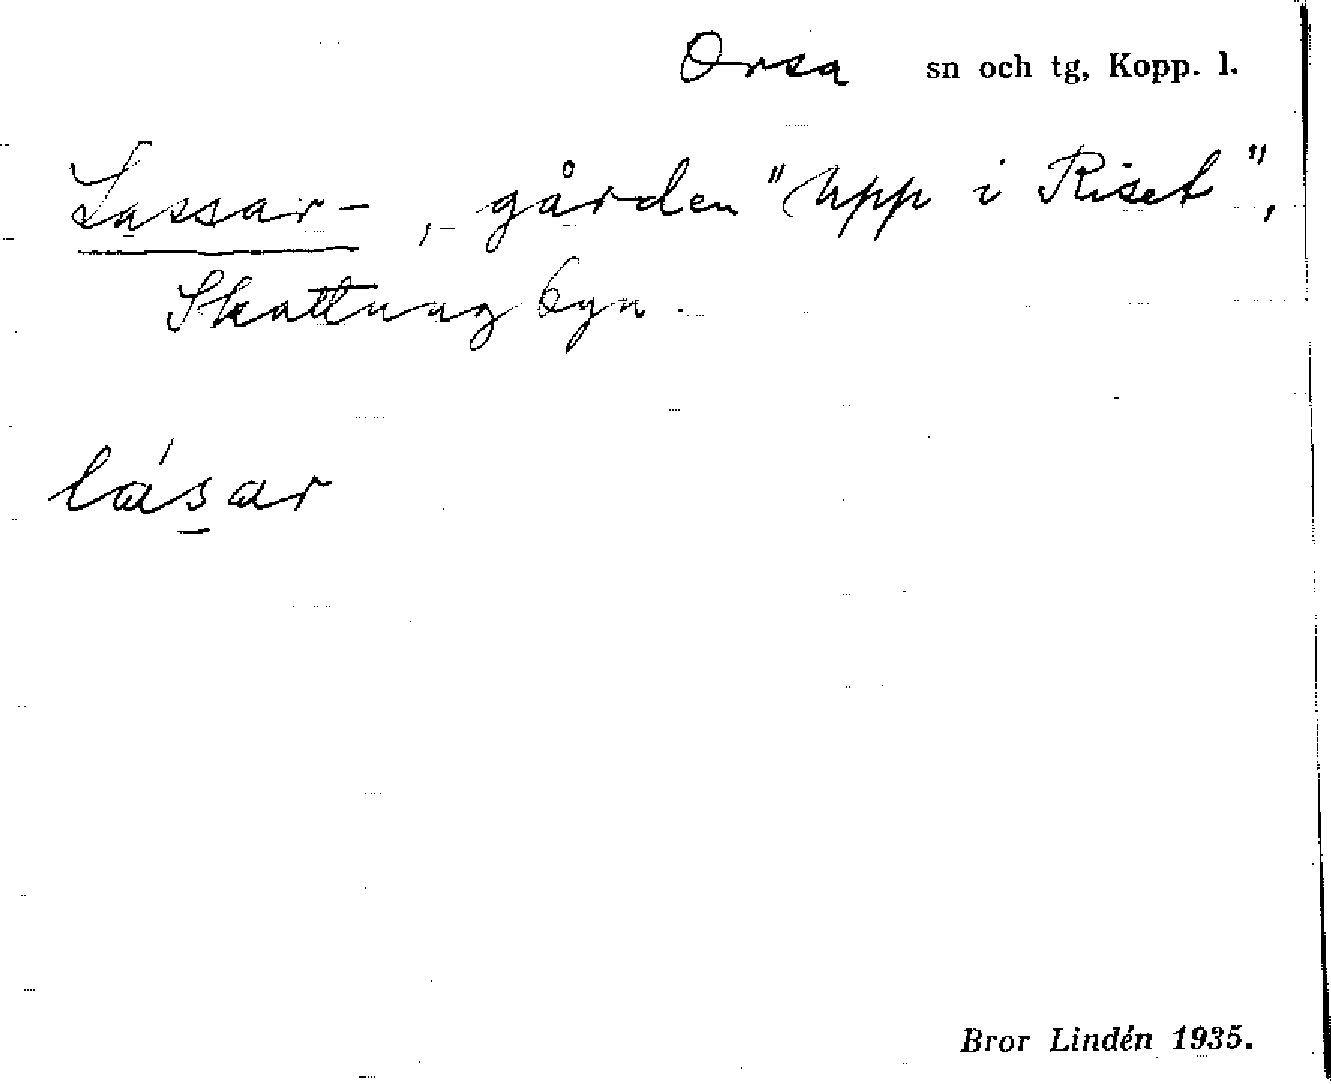 Orsa sn och tg, Kopp. l.
Lassar-, gården "Upp i Riset",
Skattungbyn.
lásar
Bror Lindén 1935.